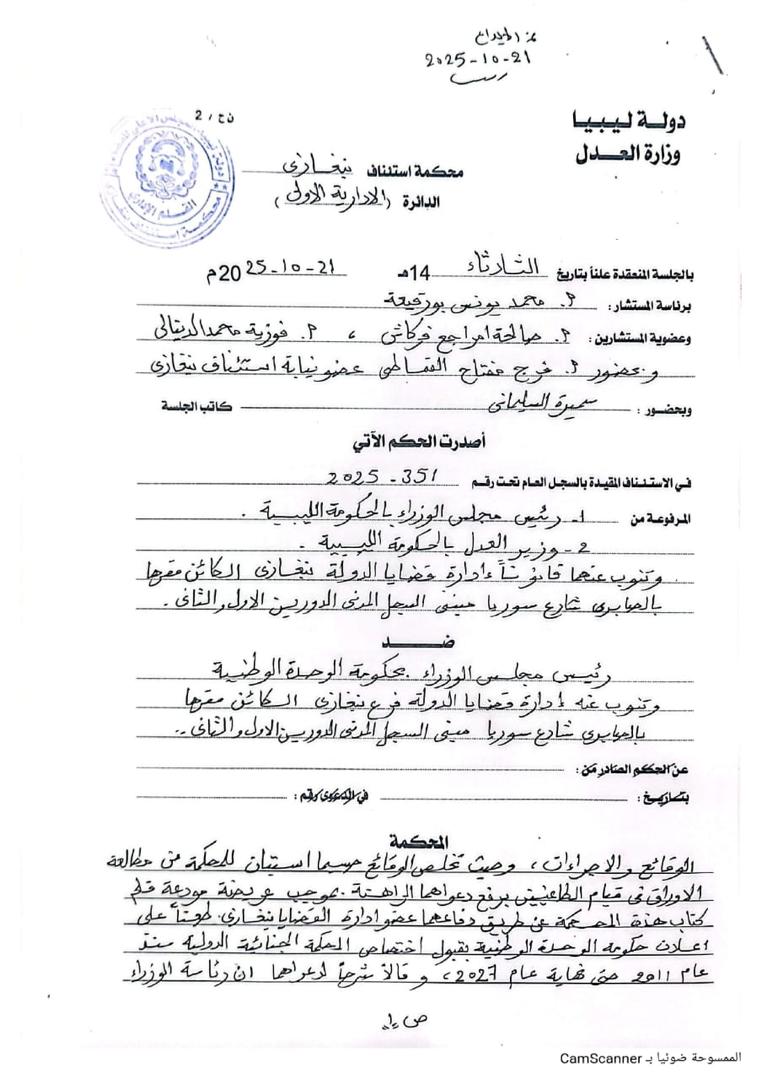 2025-10-21
ن ع / 2
دولة ليبيا
وزارة العدل
محكمة استئناف بنغازي
الدائرة (الادارية الاولى)
بالجلسة المنعقدة علناً بتاريخ الثلاثاء 14هـ 21-10-2025م
برئاسة المستشار : أ. محمد يونس بورقيعة
وعضوية المستشارين : أ. صالحة امراجع فركاش ، أ. فوزية محمد
وبحضور أ. فرج مفتاح عضو نيابة استئناف بنغازي
وبحضور : سميرة السليماني كاتب الجلسة
أصدرت الحكم الآتي
في الاستئناف المقيدة بالسجل العام تحت رقم 351 - 2025
المرفوعة من 1- رئيس مجلس الوزراء بالحكومة الليبية .
2- وزير العدل بالحكومة الليبية .
وتنوب عنهما قانوناً إدارة قضايا الدولة بنغازي الكائن مقرها
بالصابري شارع سوريا مبنى السجل المدني الدورين الاول والثاني .
ضد
رئيس مجلس الوزراء بحكومة الوحدة الوطنية
وتنوب عنه إدارة قضايا الدولة فرع بنغازي الكائن مقرها
بالصابري شارع سوريا مبنى السجل المدني الدورين الاول والثاني ..
عن الحكم الصادر من :
بتاريخ : في الدعوى رقم :
المحكمة
الوقائع والاجراءات ، وحيث تخلص الوقائع حسبما استبان للمحكمة من مطالعة
الاوراق في قيام الطاعنين برفع دعواهما الراهنة بموجب عريضة مودعة قلم
كتاب هذه المحكمة عن طريق دفاعهما عضو ادارة القضايا بنغازي طعناً على
اعلان حكومة الوحدة الوطنية بقبول اختصاص المحكمة الجنائية الدولية منذ
عام 2011 حتى نهاية عام 2027 ، وقالا شرحاً لدعواهما ان رئاسة الوزراء
ص 1
الممسوحة ضوئيا بـ CamScanner